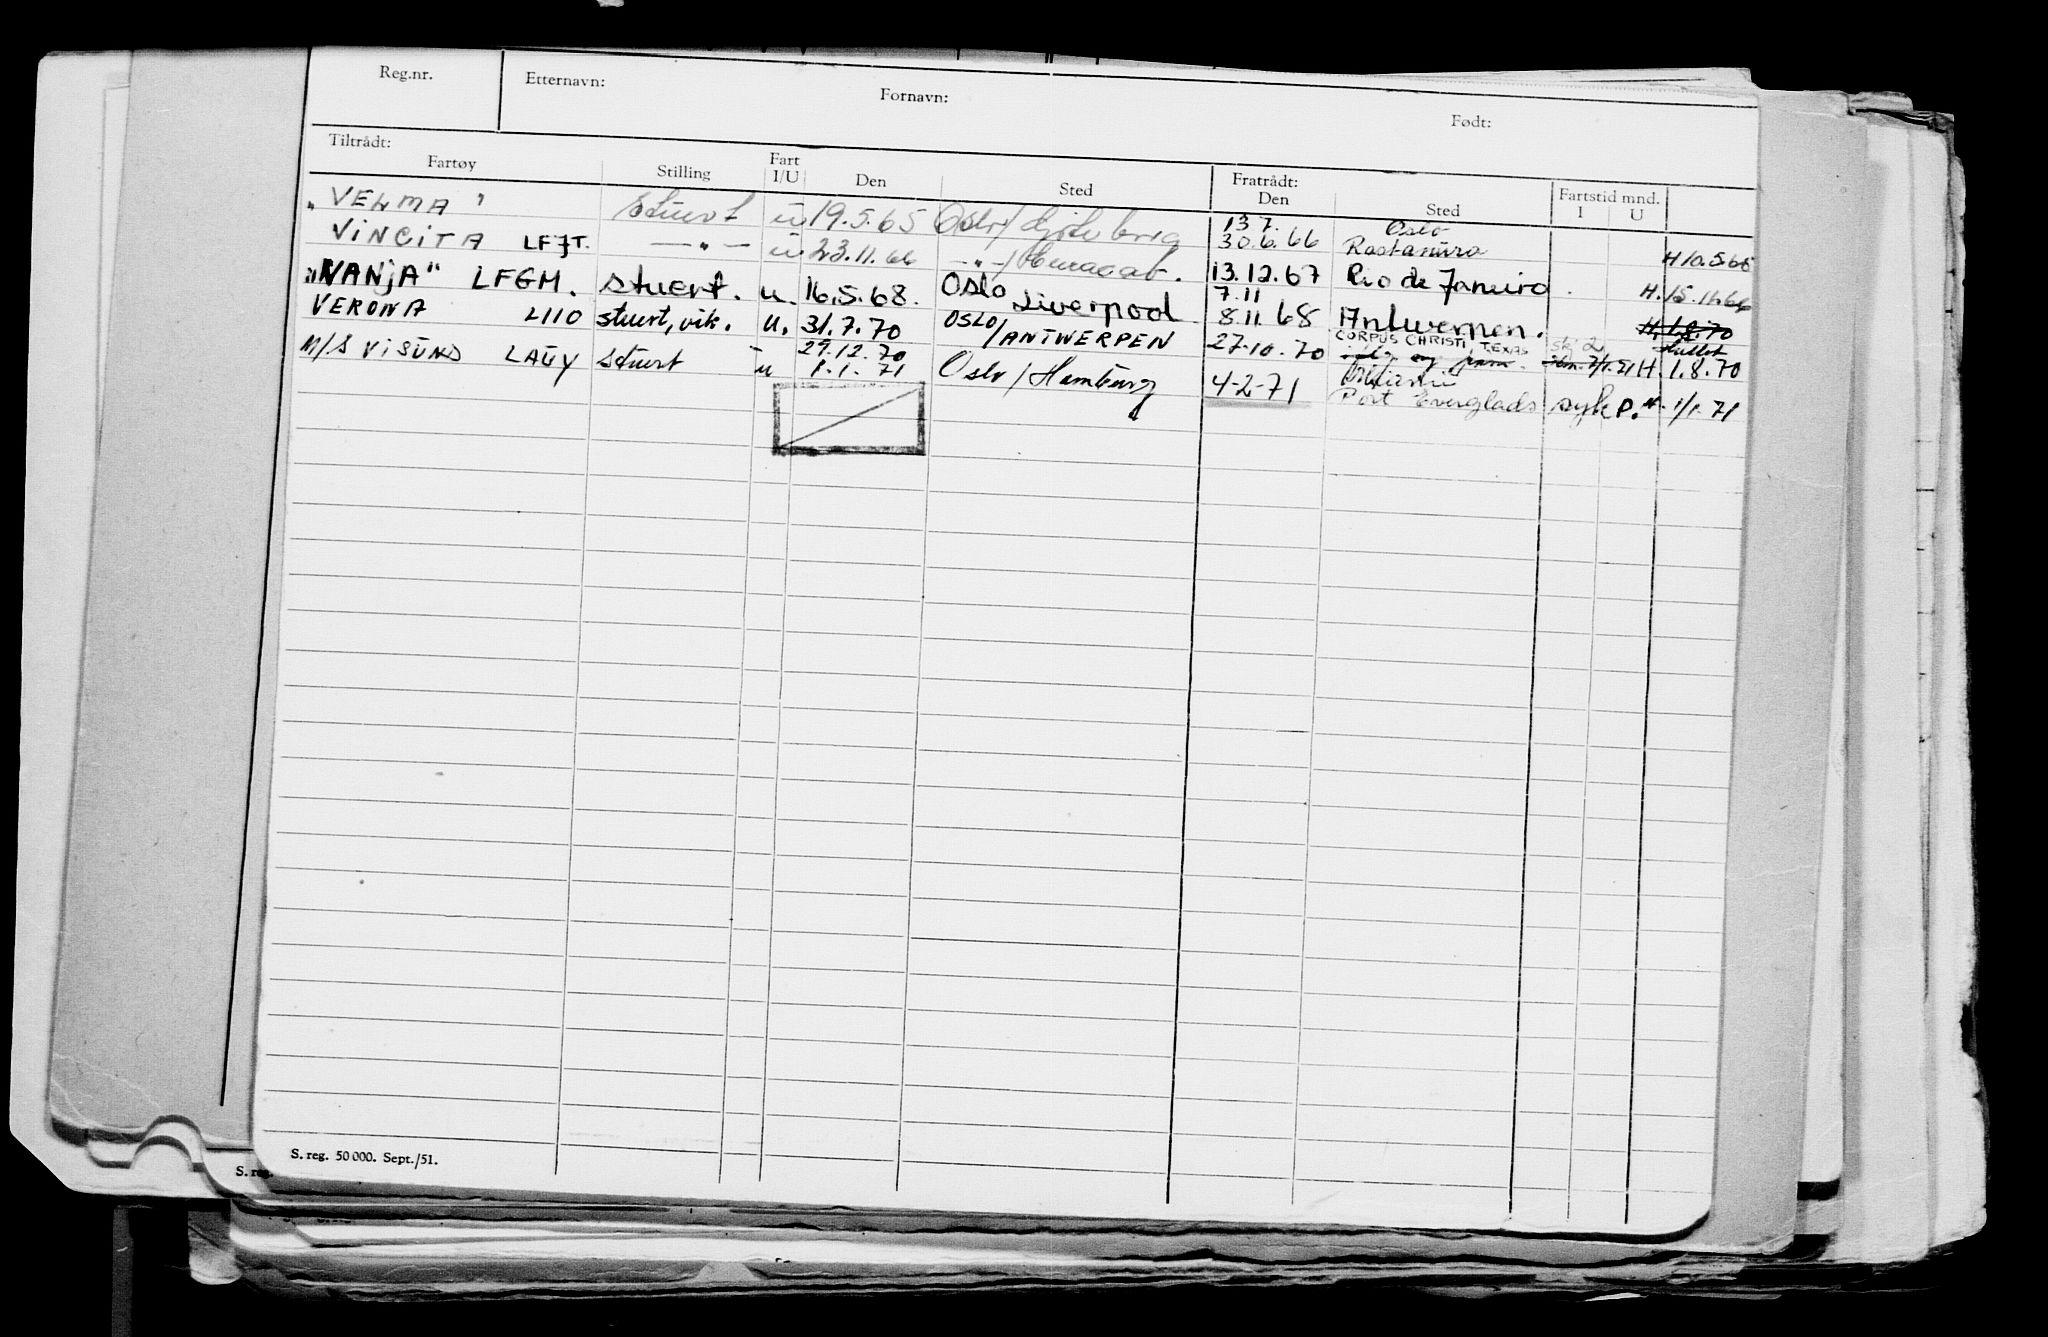 Reg.nr. Etternavn: Fornavn: Født:
Tiltrådt: Fratrådt:
Fartøy Stilling Fart I/U Den Sted Den Sted Fartstid mnd. I U
"VELMA" stuert u 19.5.65 Oslo/ 13.7. Oslo
VINCITA LFJT. —"— u 23.11.66 —"—/ 30.6.66 Rastanura H 10.5.65
"VANJA" LFGM. stuert. u. 16.5.68. Oslo Liverpool 13.12.67 Rio de Janeiro. H. 15.11.66
VERONA LIIO stuert, vik. u. 31.7.70 OSLO/ANTWERPEN 7.11 8.11.68 Antwerpen. H. 1.8.70
M/S VISUND LAUY stuert u 29.12.70 1.1.71 Oslo/Hamburg 27-10.70 CORPUS CHRISTI, TEXAS H. 1.8.70
4-2-71 Port Everglads syk P.M. 1/1.71
S. reg. 50 000. Sept./51.
S. reg.